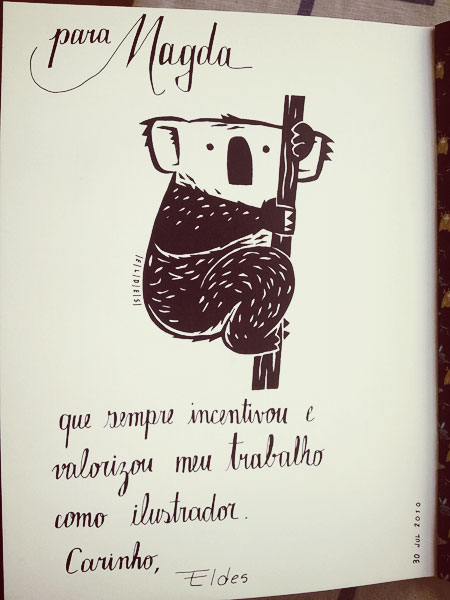 para Magda
/E/L/D/E/S/
que sempre incentivou e
valorizou meu trabalho
como ilustrador.
Carinho,
Eldes
30 JUL 2010